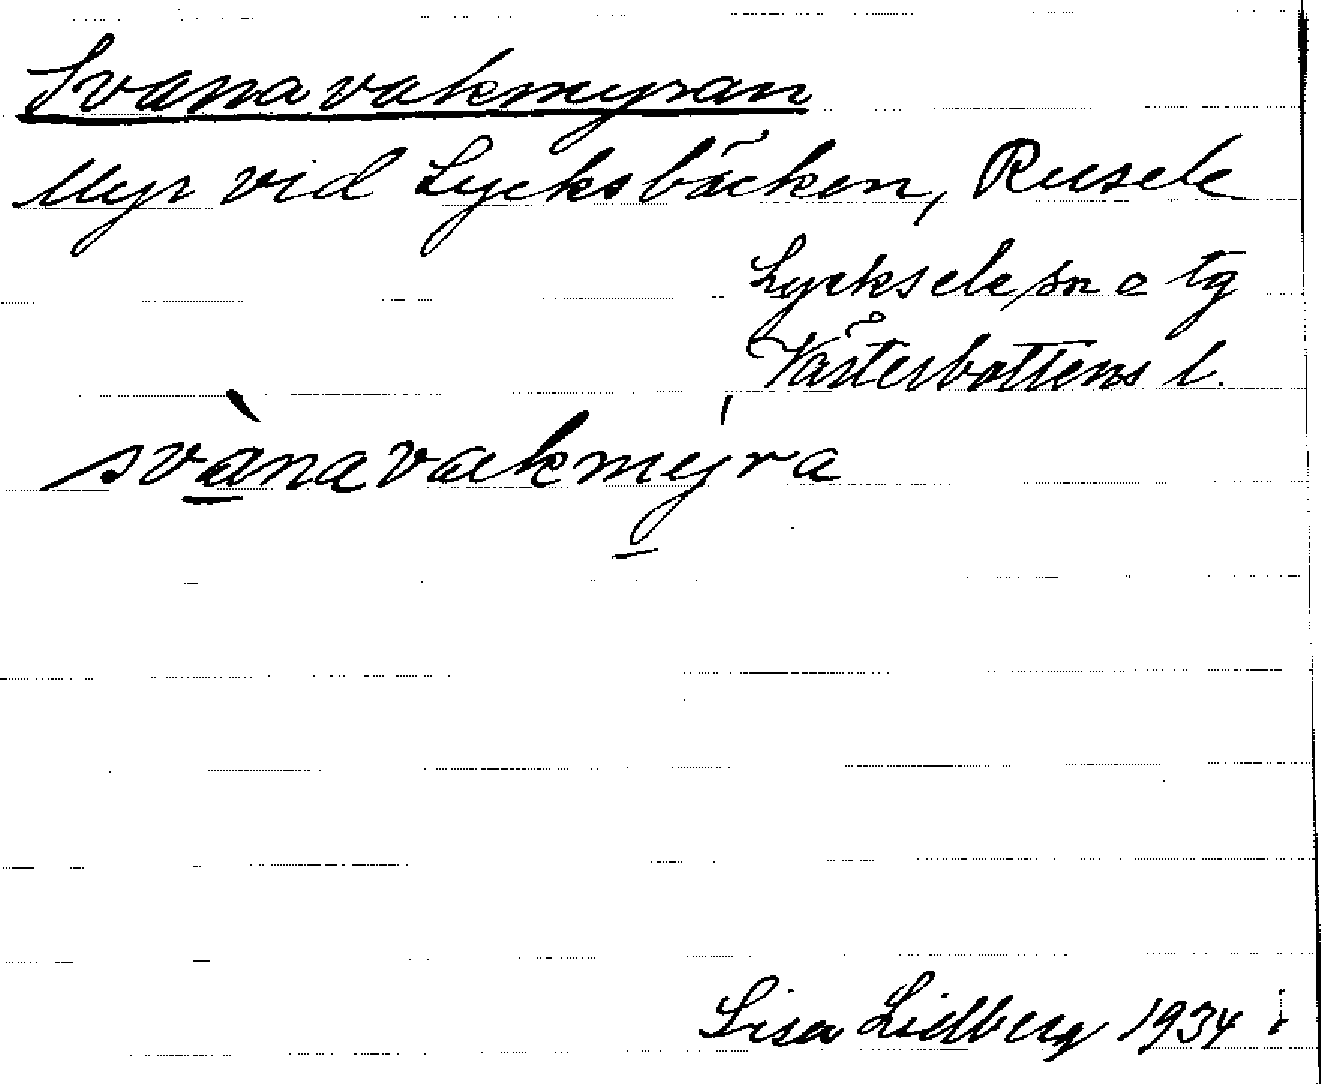 Svanavakmyran
Myr vid Lycksbäcken, Rusele
Lycksele sn o tg
Västerbottens l.
svànavakmy̱ra
Lisa Lidberg 1934